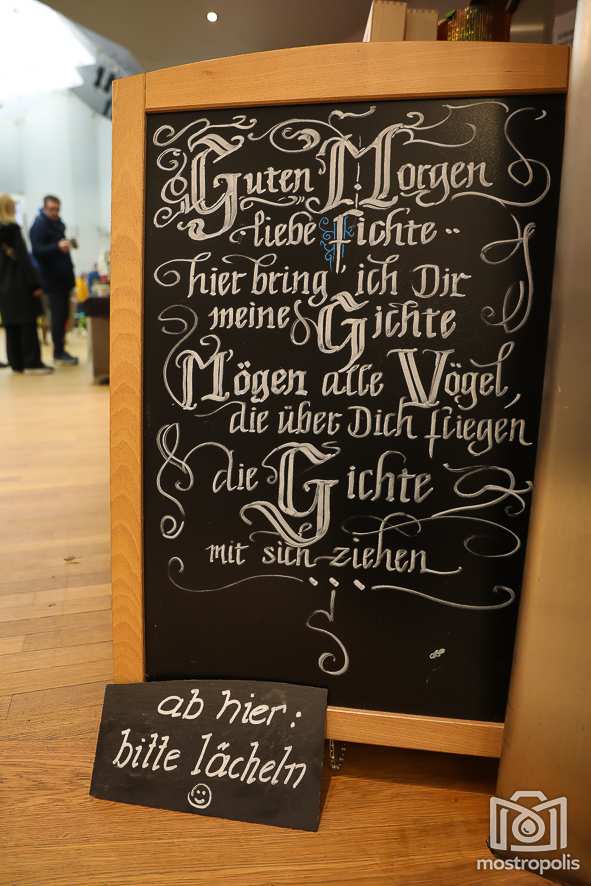 Guten Morgen
liebe Fichte..
hier bring ich Dir
meine Gichte
Mögen alle Vögel,
die über Dich fliegen
die Gichte
mit sich ziehen
ab hier:
bitte lächeln
mostropolis